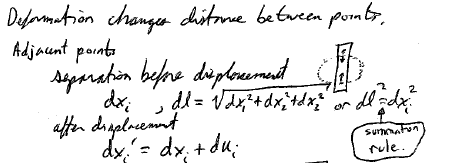 Deformation changes distance between points.
Adjacent points
separation before displacement
dxᵢ , dl = √dx₁²+dx₂²+dx₃² or dl²=dxᵢ²
after displacement
summation
rule.
dxᵢ' = dxᵢ + duᵢ